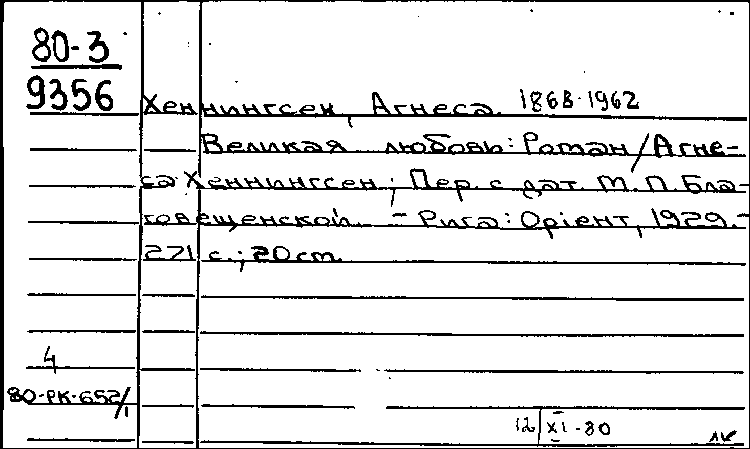 80-3
9356
Хеннингсен, Агнеса. 1868-1962
Великая любовь: Роман/Агне-
са Хеннингсен; Пер. с дат. М. П. Бла-
говещенской. – Рига: Орiент, 1929.-
271 с.; 20 cm.
4
80-РК-652/1
12 XI-80